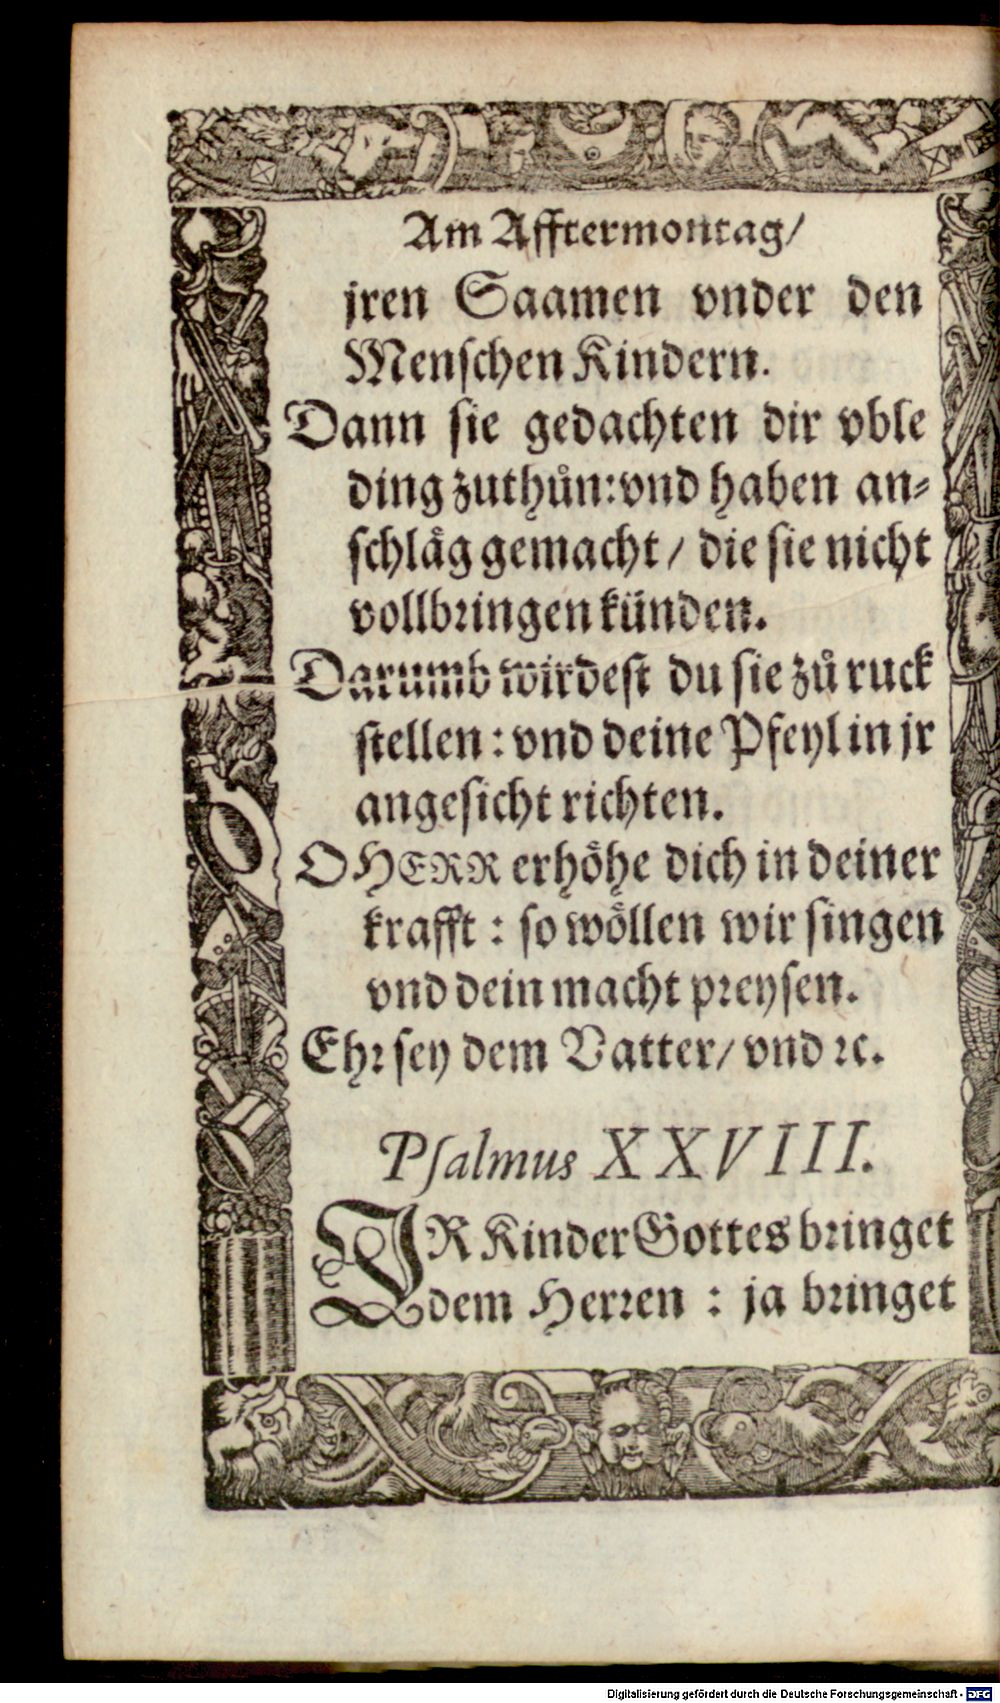 Am Afftermontag/
jren Saamen vnder den
Menſchen Kindern.
Dann ſie gedachten dir vble
ding zuthuͦn: vnd haben an⸗
ſchlaͤg gemacht / die ſie nicht
vollbringen kuͤnden.
Darumb wirdeſt du ſie zuͦ ruck
ſtellen: vnd deine Pfeyl in jr
angeſicht richten.
O HERR erhoͤhe dich in deiner
krafft: ſo woͤllen wir ſingen
vnd dein macht preyſen.
Ehr ſey dem Vatter/ vnd ꝛc.
Pſalmus XXVIII.
IR Kinder Gottes bringet
dem Herren : ja bringet
Digitalisierung gefördert durch die Deutsche Forschungsgemeinschaft - DFG